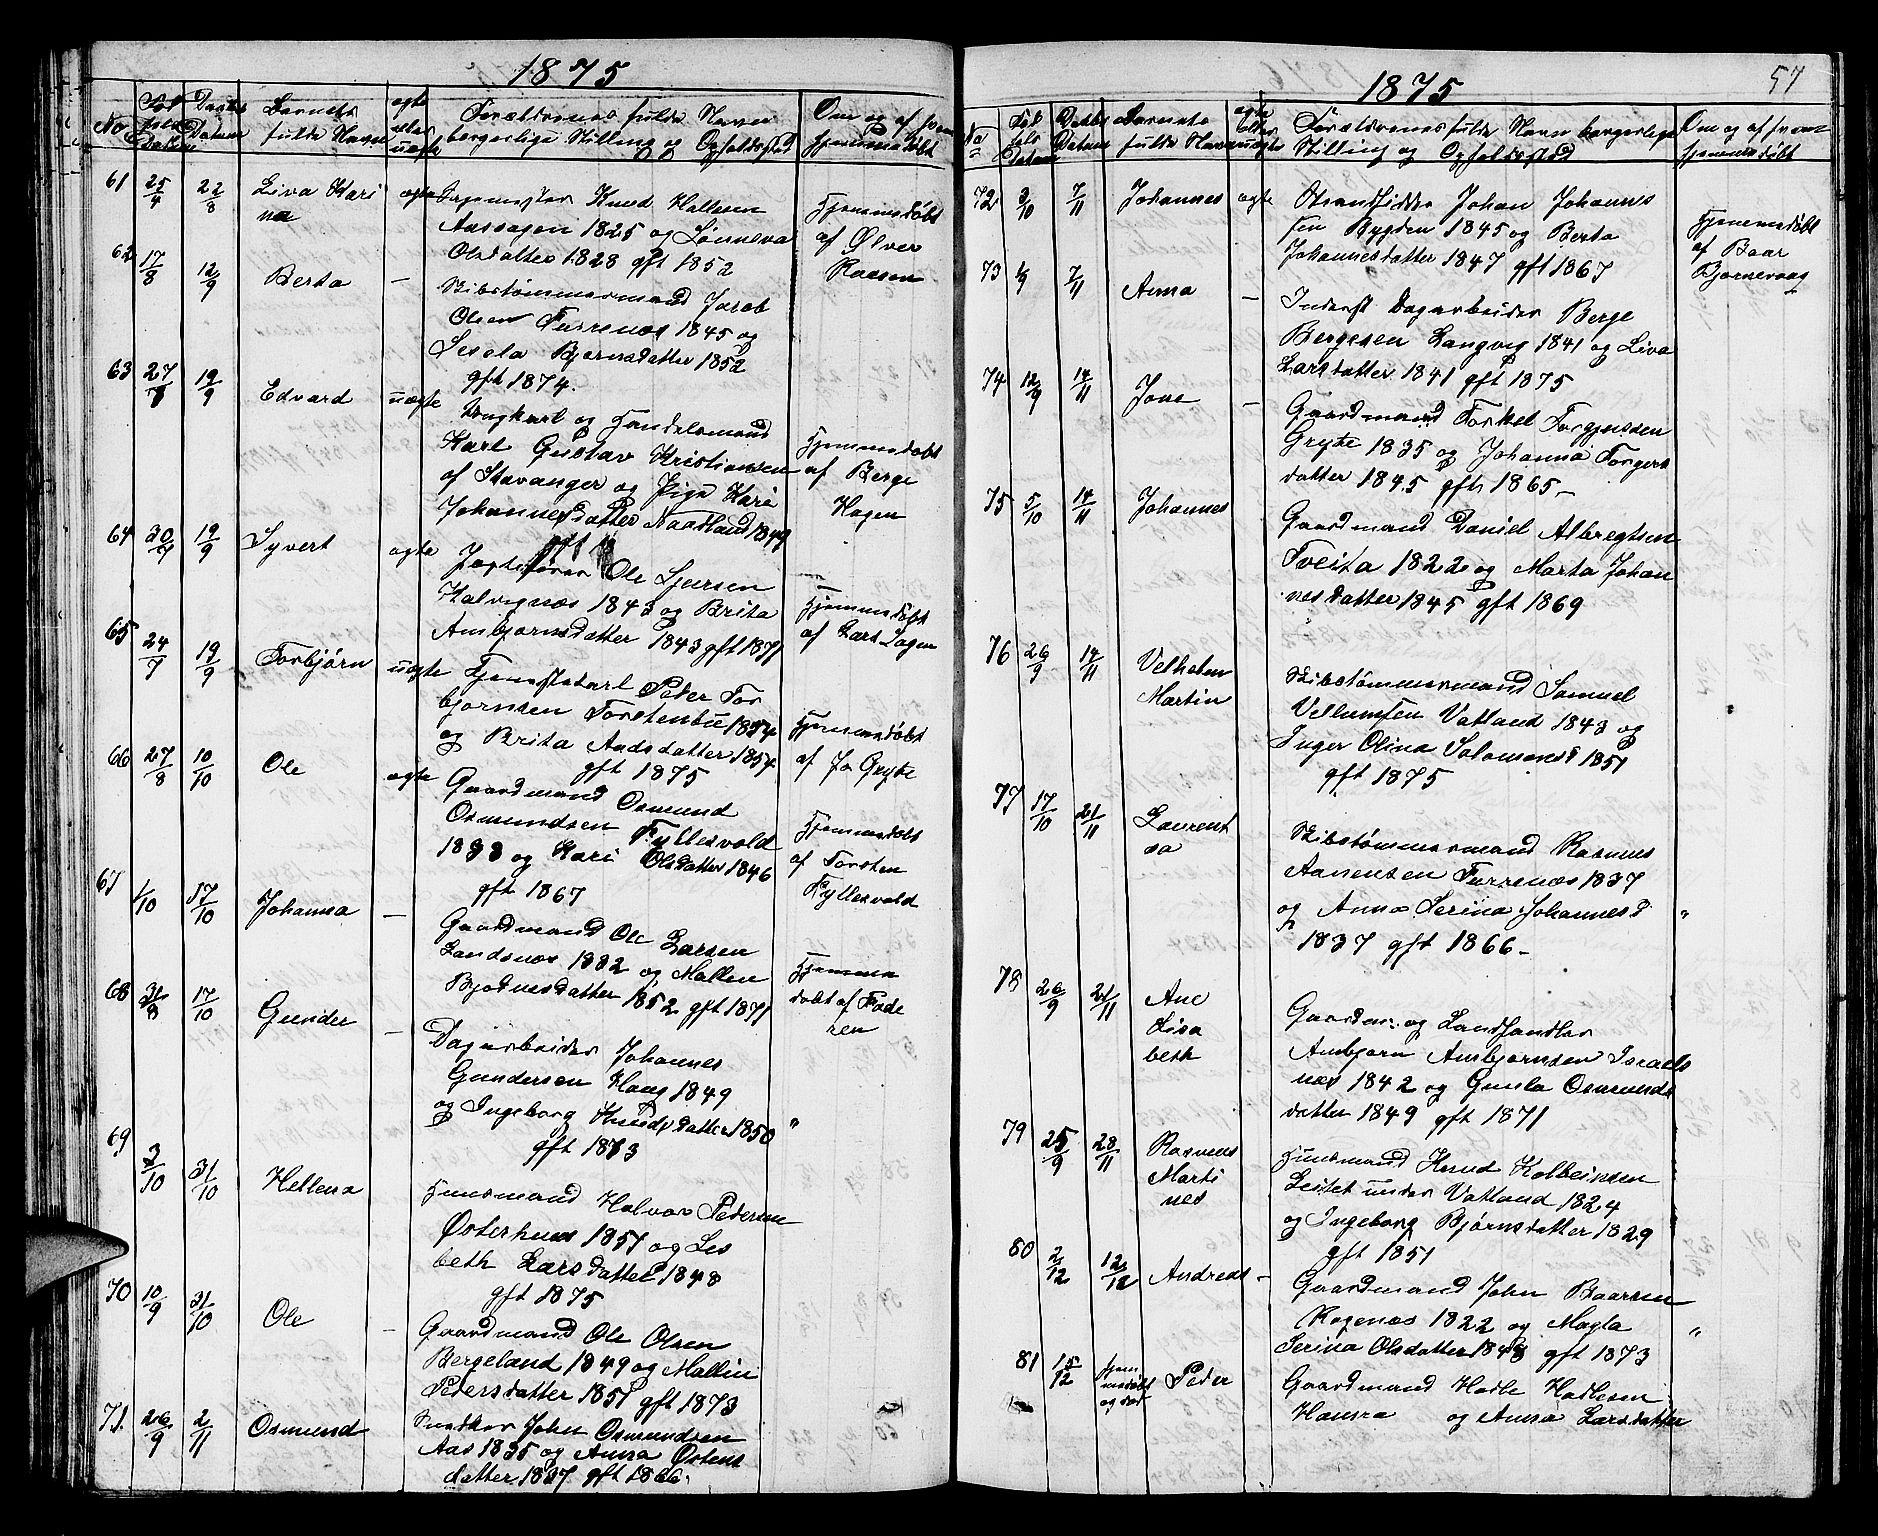 1875
No
Fød
sels
Datum
Daabs
Datum
Barnets
fulde Navn
ægte
eller
uægte
Forældrenes fulde Navn
borgerlige Stilling og Opholdssted
Om og af hvem
hjemmedøbt
61 25/4 22/8 Liva Kari
na
ægte
Knud Hallesen
Aasagen 1825 og Lønneva
Olsdatter 1828 gft 1852
Hjemmedøbt
af Ølver
Raasen
62 17/8 12/9 Berta —
Skibstømmermand Jacob
Olsen Furrenæs 1845 og
Sesela Bjørnsdatter 1852
gft 1874.
63 27/8 19/9 Edvard uægte
Ungkarl og Handelsmand
Karl Gustav Kristiansen
af Stavanger og Pige Kari
Johannesdatter Naadland 1849
Hjemmedøbt
af Berge
Hagen
64 30/7 19/9 Syvert ægte
Jagtefører Ole Sjursen
Kalvignæs 1843 og Brita
Ambjørnsdatter 1843 gft 1871
Hjemmedøbt
af Lars
65 24/7 19/9 Torbjørn uægte
Tjenestekarl Peder Tor
bjørnsen Torstenbu 1854
og Brita Aadsdatter 1854
gft 1875
Hjemmedøbt
af Jo Gryte
66 27/8 10/10 Ole ægte
Gaardmand Osmund
Osmundsen Fyllesvold
1838 og Kari Olsdatter 1846
gft 1867
Hjemmedøbt
af Torsten
Fyllesvold
67 1/10 17/10 Johanna —
Gaardmand Ole Larsen
Landsnæs 1832 og Mallen
Bjødnesdatter 1852 gft 1871
Hjemme
døbt af Fade
ren
68 31/8 17/10 Gunder —
Dagarbeider Johannes
Gundersen Haag 1849
og Ingeborg Knudsdatter 1850
gft 1873
"
69 3/10 31/10 Hellena
Huusmand Halvor Pedersen
Østerhuus 1851 og Les
beth Larsdatter 1848
gft 1875
70 10/9 31/10 Ole —
Gaardmand Ole Olsen
Bergeland 1849 og Mallin
Pedersdatter 1851 gft 1873
71. 26/9 2/11 Osmund
Snedker John Osmundsen
Aas 1835 og Anna Østens
datter 1837 gft 1866.
57
1875
No
Fød
sels
Datum
Daabs
Datum
Barnets
fulde Navn
ægte
eller
uægte
Forældrenes fulde Navn borgerlige
Stilling og Opholdssted
Om og af hvem
hjemmedøbt
72 3/10 7/11 Johannes ægte
Strandsidder Johan Johannes
sen Bygden 1845 og Berta
Johannesdatter 1847 gft 1867
Hjemmedøbt
af Baar
Bjørnevaag
73 6/9 7/11 Anna —
Inderst Dagarbeider Berge
Bergesen Langvig 1841 og Liva
Larsdatter 1841 gft 1875
74 12/9 14/11 Jone —
Gaardmand Torkel Torgjussen
Gryte 1835 og Johanna Torgers
datter 1845 gft 1865 —
75 5/10 14/11 Johannes
Gaardmand Daniel Albregtsen
Tveita 1822 og Marta Johan
nesdatter 1845 gft 1869
76 26/9 14/11 Velhelm
Martin
Skibstømmermand Samuel
Vellumsen Vatland 1843 og
Inger Olina Salomonsd 1851
gft 1875
77 17/10 21/11 Laurent
sa
Skibstømmermand Rasmus
Aanensen Furrenæs 1837
og Anna Serina Johannesd
1837 gft 1866 —
"
78 26/9 21/11 Ane
Lisa
beth
Gaardm. og Landhandler
Ambjørn Ambjørnsen Israels
næs 1842 og Gunla Osmunds
datter 1849 gft 1871
79 25/9 28/11 Rasmus
Marti
nes
Huusmand Knud Kolbeinsen
Leitet under Vatland 1824
og Ingeborg Bjørnsdatter 1829
gft 1851
80 2/12 12/12 Andreas —
Gaardmand John Baarsen
Rogenæs 1822 og Magla
Serina Olsdatter 1848 gft 1873
"
81 15/12 hjem
medøbt
og død
Peder
Gaardmand Hadle Hadlesen
Hamra og Anna Larsdatter